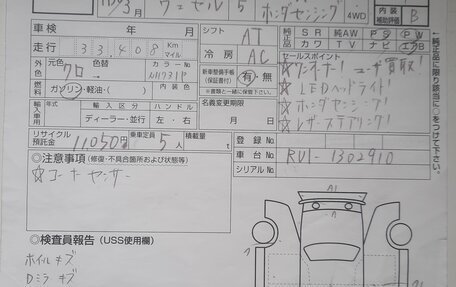 3月 ヴェゼル 5 ホンダセンシング 4WD 内装 補助評価 B
車検 年 月 シフト AT 純正品 SR 純AW PS PW
走行 33,408 Km マイル 冷房 AC カワ TV ナビ エアB
外 元色 クロ 色替 カラーNo NH731P 新車整備手帳(保証書付) 有・無 セールスポイント
※書類と一緒に保管下さい。 ☆ワンオーナー ユーザー買取!
燃料 ガソリン・軽油( ) 内装色 ☆LEDヘッドライト!
輸入車用 年式 輸入区分 ハンドル 名義変更期限 ☆ホンダセンシング!
年 ディーラー・並行 左・右 月 日 ☆レザーステアリング!
純正品に限り該当に○をつけて下さい。
リサイクル預託金 11050円 乗車定員 5人 積載量 t 登録No
車台No RU1-1302910
シリアルNo
◎注意事項(修復・不具合箇所および状態等)
☆コーナーセンサー
A1
◎検査員報告(USS使用欄)
ホイルキズ
Dミラキズ